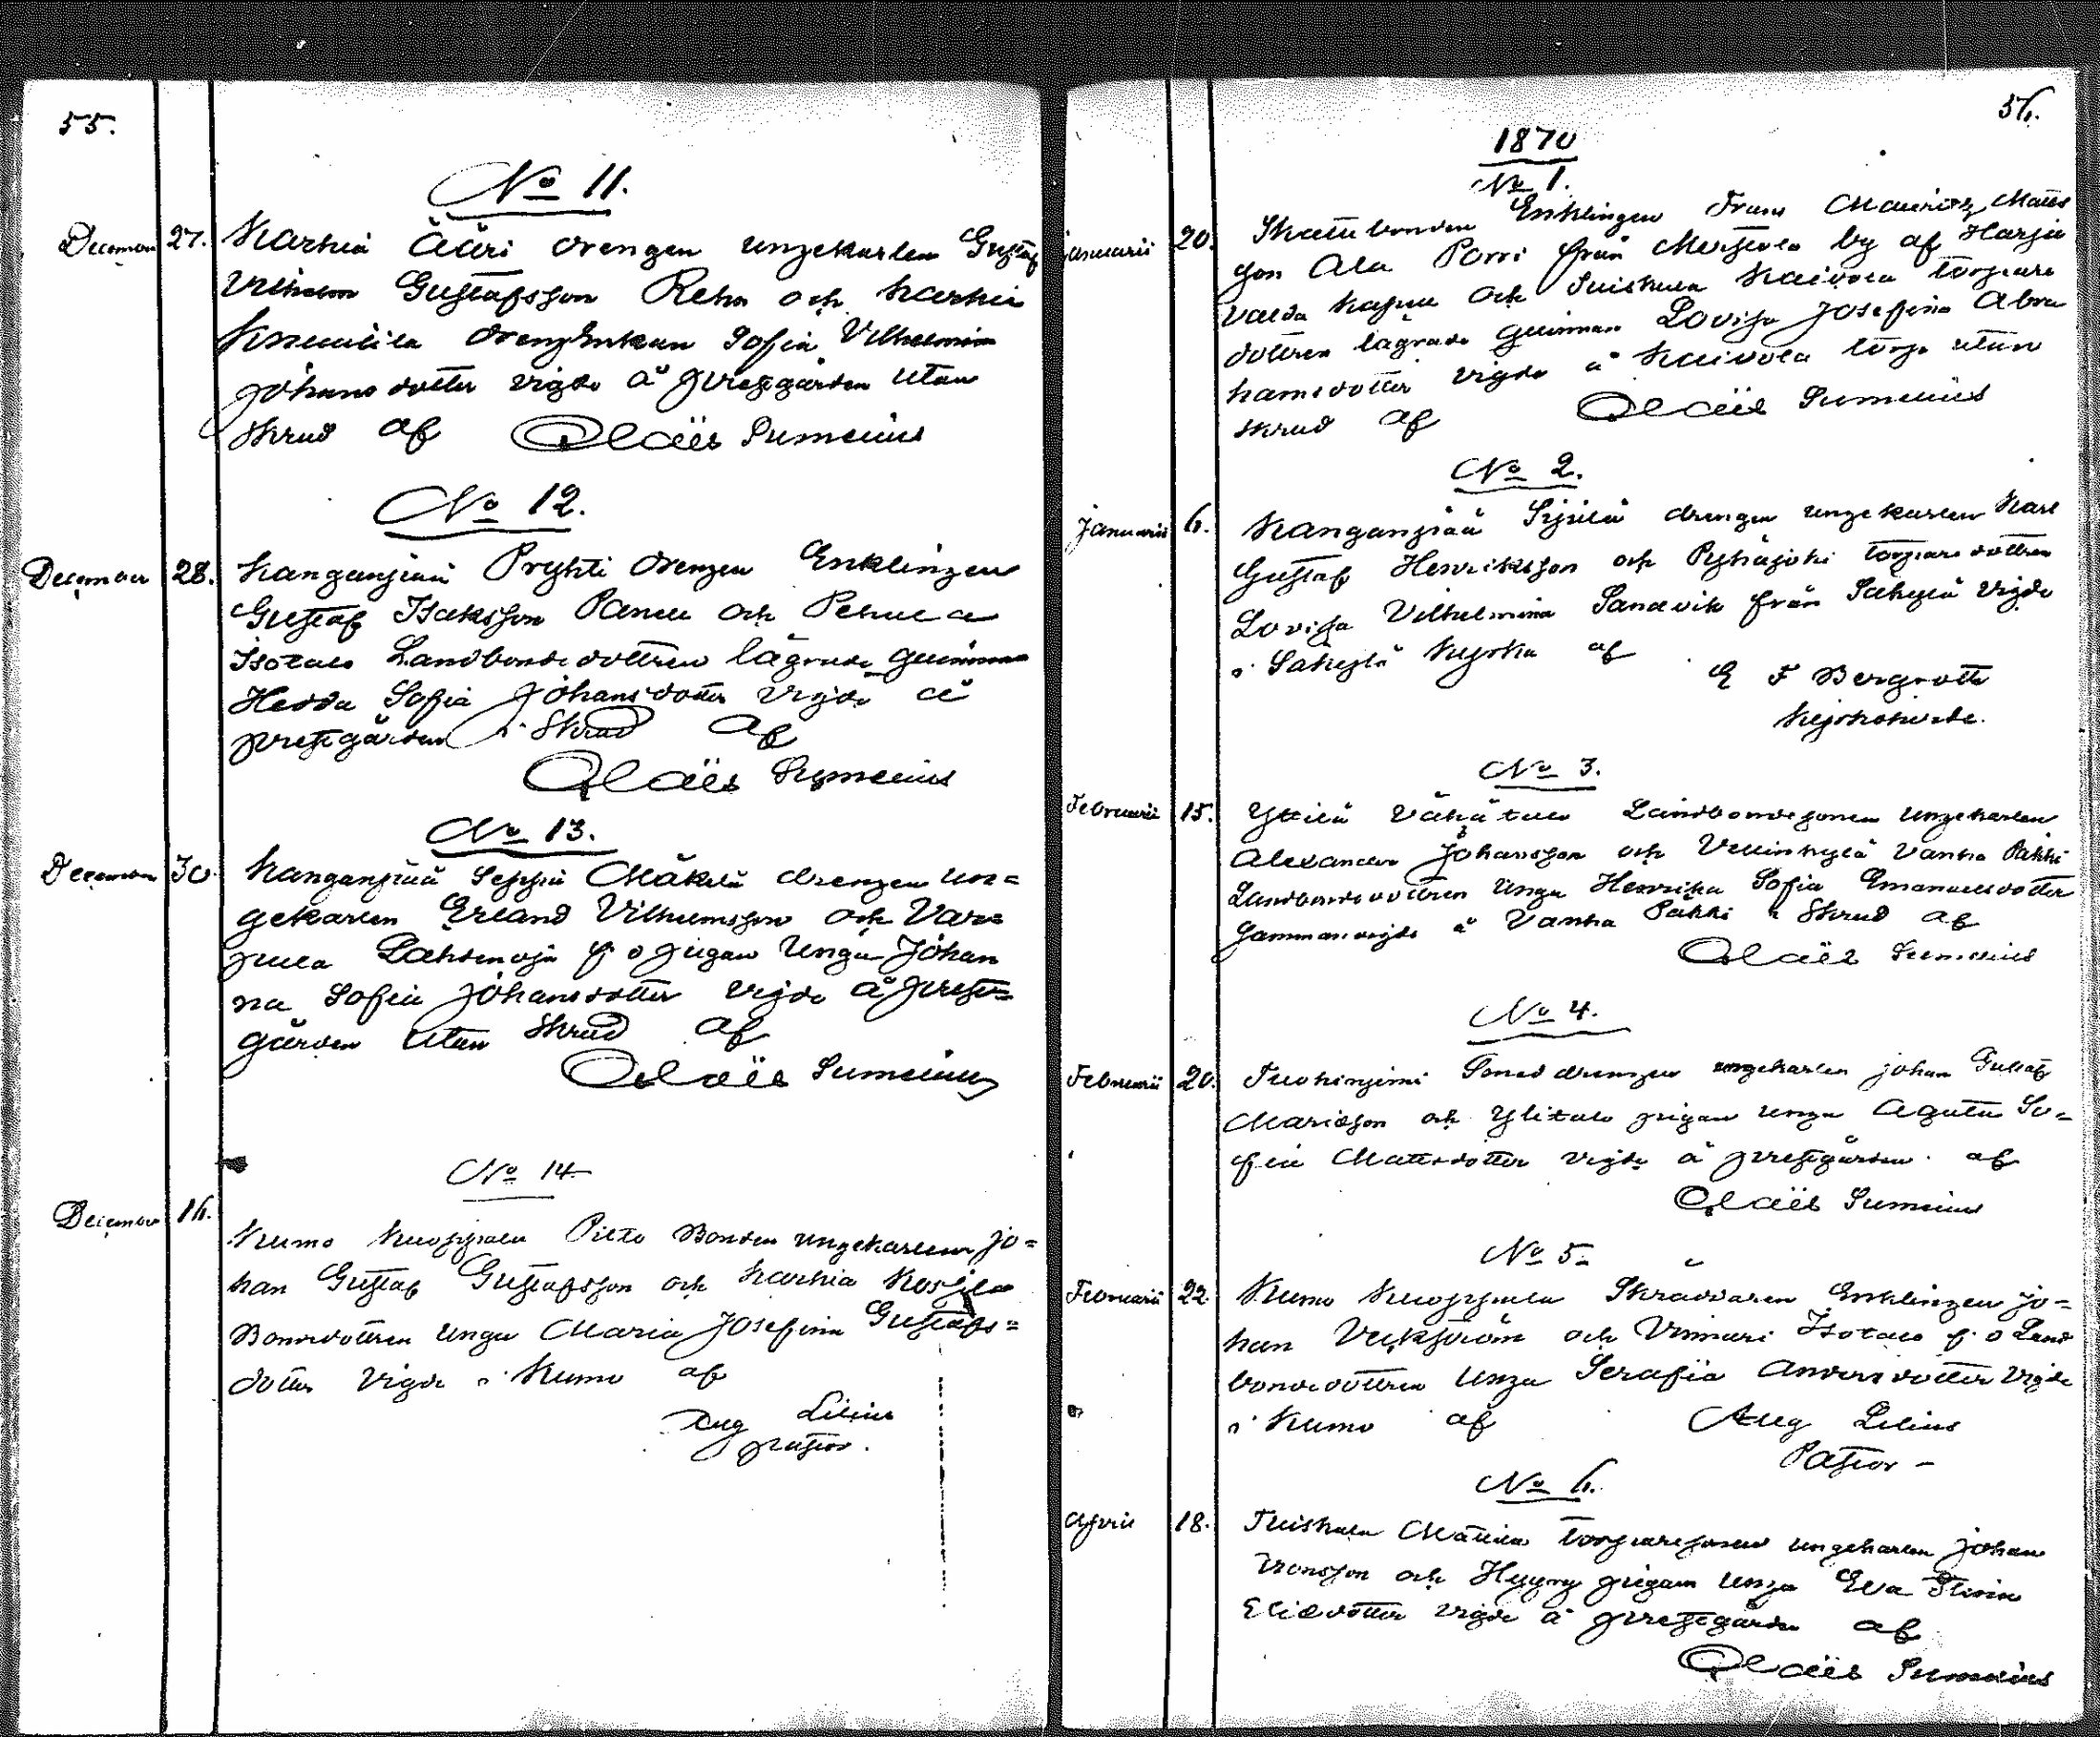 55.
No 11.
December 27. Karhia Ääri drengen ungekarlen Gustaf
Vilhelm Gustafsson Rehn och Karhia
drengenkan Sofia Vilhelmina
Johansdotter vigde å prestgården utan
Skrud af Claës Sumelius
No 12.
December 28. Kanganpää Pryhti drengen Enklingen
Gustaf Isaksson Panen och
Isotalo Landbondedottren lägrade qvinnan
Hedda Sofia Johansdotter vigde å
prestgården i Skrud af
Claës Sumelius
No 13.
December 30. Kanganpää Seppä Mäkelä drengen un=
gekarlen Erland Vilhelmsson och Vam=
pula Lahdenoja f o pigan Unga Johan
na Sofia Johansdotter vigde å prest=
gården utan Skrud af
Claës Sumelius
No 14
December 16. Kumo Kuoppala Pilto Bonden ungekarlen Jo=
han Gustaf Gustafsson och Karhia
Bondedottren Unga Maria Josefina Gustafs=
dotter vigde i Kumo af
Aug Lilius
pastor.
56.
1870
No 1.
Januarii 20. Skattebonden Enklingen Frans Mauritz Matts
son Ala Porri från by af Harja
valda Kapell och Suiskula Kaivola torpare
dottren lägrade qvinnan Lovisa Josefina Abra
hamsdotter vigde å Kaivola torp utan
skrud af Claës Sumelius
No 2.
Januarii 6. Kanganpää Sipilä drengen ungekarlen Karl
Gustaf Henriksson och Pyhäjoki torparedottren
Lovisa Vilhelmina Sandvik från Säkylä vigde
i Säkylä kyrka af
E F Bergroth
Kyrkoherde.
No 3.
Februarii 15. Yttilä Vähätalo Landbondesonen ungekarlen
Alexander Johansson och Vanha Päkki
Landbondedottren Unga Henrika Sofia Emanuelsdotter
sammanvigde å Vanha Päkki i Skrud af
Claës Sumelius
No 4.
Februarii 20. drengen ungekarlen Johan Gustaf
Mariasson och Ylitalo pigan unga Agata So=
fia Mattsdotter vigde å prestgården af
Claës Sumelius
No 5.
Februarii 22. Kumo Kuoppala Skräddaren Enklingen Jo=
han Vekström och Vinnari Isotalo f. o Land
bondedottren Unga Serafia Andersdotter vigde
i Kumo af Aug Lilius
Pastor –
No 6.
April 18. Suiskula Mattila torparesonen ungekarlen Johan
och Hyyny pigan unga Eva Stina
Eliedotter vigde å prestgården af
Claës Sumelius